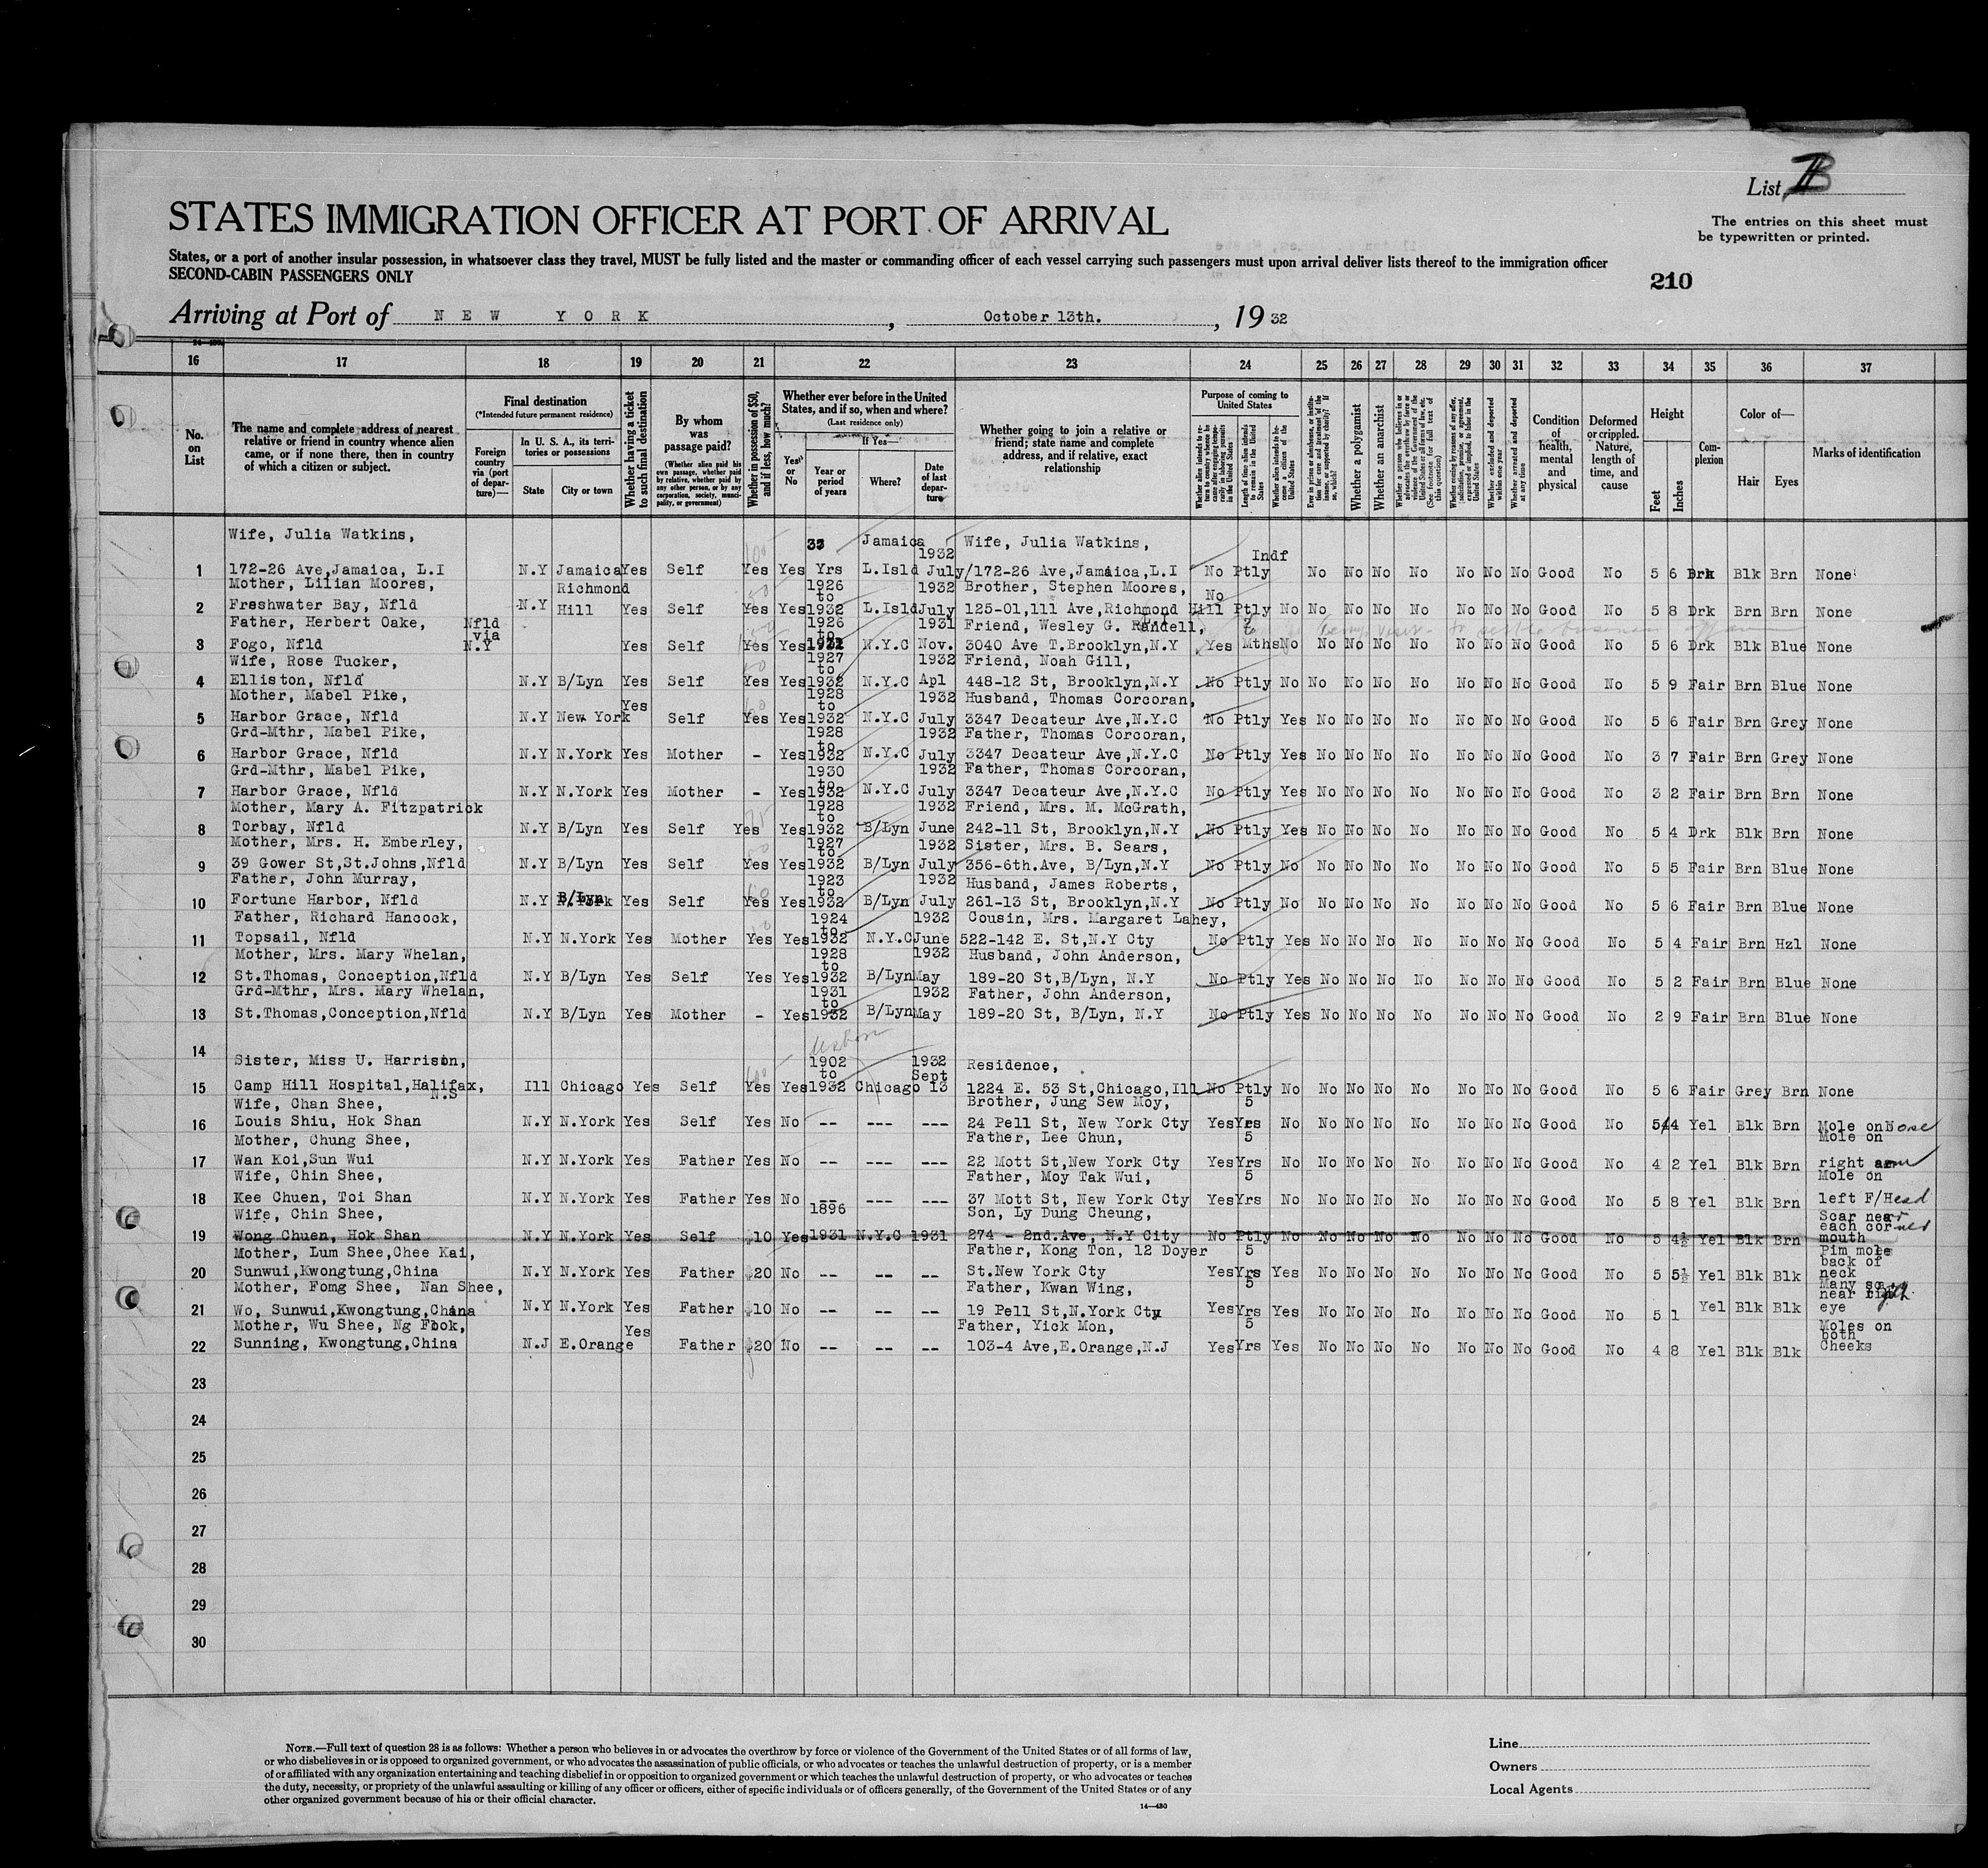 List
The entries on this sheet must
be typewritten or printed.
STATES IMMIGRATION OFFICER AT PORT OF ARRIVAL
States, or a port of another insular possession, in whatsoever class they travel, MUST be fully listed and the master or commanding officer of each vessel carrying such passengers must upon arrival deliver lists thereof to the immigration officer
SECOND-CABIN PASSENGERS ONLY
210
Arriving at Port of NEW YORK, October 13th., 1932
16 17 18 19 20 21 22 23 24 25 26 27 28 29 30 31 32 33 34 35 36 37
No. on List
The name and complete address of nearest relative or friend in country whence alien came, or if none there, then in country of which a citizen or subject.
Final destination
(*Intended future permanent residence)
Foreign country via (port of departure)—
In U. S. A., its territories or possessions
State
City or town
Whether having a ticket to such final destination
By whom was passage paid?
(Whether alien paid his own passage, whether paid by relative, whether paid by any other person, or by any corporation, society, municipality, or government)
Whether in possession of $50, and if less, how much?
Whether ever before in the United States, and if so, when and where?
(Last residence only)
Yes or No
If Yes—
Year or period of years
Where?
Date of last departure
Whether going to join a relative or friend; state name and complete address, and if relative, exact relationship
Purpose of coming to United States
Whether a polygamist
Whether an anarchist
Condition of health, mental and physical
Deformed or crippled. Nature, length of time, and cause
Height
Feet
Inches
Complexion
Color of—
Hair
Eyes
Marks of identification
Wife, Julia Watkins, Jamaica 1932 Wife, Julia Watkins, Indf
1 172-26 Ave,Jamaica, L.I N.Y Jamaica Yes Self Yes Yes Yrs L.Isld July/172-26 Ave,Jamaica,L.I No Ptly No No No No No No No Good No 5 6 Drk Blk Brn None
Mother, Lilian Moores, Richmond 1926 to 1932 Brother, Stephen Moores, No
2 Freshwater Bay, Nfld N.Y Hill Yes Self Yes Yes 1932 L.Isld July 125-01,111 Ave,Richmond Hill Ptly No No No No No No No No Good No 5 8 Drk Brn Brn None
Father, Herbert Oake, Nfld via 1926 to 1931 Friend, Wesley G. Randell,
3 Fogo, Nfld N.Y Yes Self Yes Yes N.Y.C Nov. 3040 Ave T.Brooklyn,N.Y Yes Mths No No No No No No No No Good No 5 6 Drk Blk Blue None
Wife, Rose Tucker, 1927 to 1932 Friend, Noah Gill,
4 Elliston, Nfld N.Y B/Lyn Yes Self Yes Yes 1932 N.Y.C Apl 448-12 St, Brooklyn,N.Y No Ptly No No No No No No No No Good No 5 9 Fair Brn Blue None
Mother, Mabel Pike, Yes 1928 to 1932 Husband, Thomas Corcoran,
5 Harbor Grace, Nfld N.Y New York Self Yes Yes 1932 N.Y.C July 3347 Decateur Ave,N.Y.C No Ptly Yes No No No No No No No Good No 5 6 Fair Brn Grey None
Grd-Mthr, Mabel Pike, 1928 to 1932 Father, Thomas Corcoran,
6 Harbor Grace, Nfld N.Y N.York Yes Mother - Yes 1932 N.Y.C July 3347 Decateur Ave,N.Y.C No Ptly Yes No No No No No No No Good No 3 7 Fair Brn Grey None
Grd-Mthr, Mabel Pike, 1930 to 1932 Father, Thomas Corcoran,
7 Harbor Grace, Nfld N.Y N.York Yes Mother - Yes 1932 N.Y.C July 3347 Decateur Ave,N.Y.C No Ptly Yes No No No No No No No Good No 3 2 Fair Brn Brn None
Mother, Mary A. Fitzpatrick 1928 to 1932 Friend, Mrs. M. McGrath,
8 Torbay, Nfld N.Y B/Lyn Yes Self Yes Yes 1932 B/Lyn June 242-11 St, Brooklyn,N.Y No Ptly Yes No No No No No No No Good No 5 4 Drk Blk Brn None
Mother, Mrs. H. Emberley, 1927 to 1932 Sister, Mrs. B. Sears,
9 39 Gower St,St.Johns,Nfld N.Y B/Lyn Yes Self Yes Yes 1932 B/Lyn July 356-6th.Ave, B/Lyn,N.Y No Ptly No No No No No No No No Good No 5 5 Fair Brn Blue None
Father, John Murray, 1923 to 1932 Husband, James Roberts,
10 Fortune Harbor, Nfld N.Y B/Lyn Yes Self Yes Yes 1932 B/Lyn July 261-13 St, Brooklyn,N.Y No Ptly No No No No No No No No Good No 5 6 Fair Brn Blue None
Father, Richard Hancock, 1924 to 1932 Cousin, Mrs. Margaret Lahey,
11 Topsail, Nfld N.Y N.York Yes Mother Yes Yes 1932 N.Y.C June 522-142 E. St,N.Y Cty No Ptly Yes No No No No No No No Good No 5 4 Fair Brn Hzl None
Mother, Mrs. Mary Whelan, 1928 to 1932 Husband, John Anderson,
12 St.Thomas, Conception,Nfld N.Y B/Lyn Yes Self Yes Yes 1932 B/Lyn May 189-20 St,B/Lyn, N.Y No Ptly Yes No No No No No No No Good No 5 2 Fair Brn Blue None
Grd-Mthr, Mrs. Mary Whelan, 1931 to 1932 Father, John Anderson,
13 St.Thomas,Conception,Nfld N.Y B/Lyn Yes Mother - Yes 1932 B/Lyn May 189-20 St, B/Lyn, N.Y No Ptly Yes No No No No No No No Good No 2 9 Fair Brn Blue None
14
Sister, Miss U. Harrison, 1902 to 1932 Sept Residence,
15 Camp Hill Hospital,Halifax, N.S Ill Chicago Yes Self Yes Yes 1932 Chicago 13 1224 E. 53 St,Chicago,Ill No Ptly No No No No No No No No Good No 5 6 Fair Grey Brn None
Wife, Chan Shee, Brother, Jung Sew Moy, 5
16 Louis Shiu, Hok Shan N.Y N.York Yes Self Yes No -- --- --- 24 Pell St, New York Cty Yes Yrs No No No No No No No No Good No 5 4 Yel Blk Brn Mole on Nose
Mother, Chung Shee, Father, Lee Chun, 5 Mole on
17 Wan Koi,Sun Wui N.Y N.York Yes Father Yes No -- --- --- 22 Mott St,New York Cty Yes Yrs No No No No No No No No Good No 4 2 Yel Blk Brn right arm
Wife, Chin Shee, Father, Moy Tak Wui, 5 Mole on
18 Kee Chuen, Toi Shan N.Y N.York Yes Father Yes No -- --- --- 37 Mott St, New York Cty Yes Yrs No No No No No No No No Good No 5 8 Yel Blk Brn left F/Head
Wife, Chin Shee, 1896 Son, Ly Dung Cheung, Scar near each corner
19 Wong Chuen, Hok Shan N.Y N.York Yes Self $10 Yes 1931 N.Y.C 1931 274 - 2nd.Ave, N.Y City No Ptly No No No No No No No No Good No 5 4½ Yel Blk Brn mouth
Mother, Lum Shee,Chee Kai, Father, Kong Ton, 12 Doyer 5 Pim mole back of
20 Sunwui,Kwongtung,China N.Y N.York Yes Father $20 No -- -- -- St.New York Cty Yes Yrs Yes No No No No No No No Good No 5 5½ Yel Blk Blk neck
Mother, Fomg Shee, Nan Shee, Father, Kwan Wing, 5 Many near right
21 Wo, Sunwui,Kwongtung,China N.Y N.York Yes Father $10 No -- -- -- 19 Pell St,N.York Cty Yes Yrs Yes No No No No No No No Good No 5 1 Yel Blk Blk eye
Mother, Wu Shee, Ng Fook, Yes Father, Yick Mon, 5 Moles on both
22 Sunning, Kwongtung,China N.J E.Orange Father $20 No -- -- -- 103-4 Ave,E.Orange,N.J Yes Yrs Yes No No No No No No No Good No 4 8 Yel Blk Blk Cheeks
23
24
25
26
27
28
29
30
NOTE.—Full text of question 28 is as follows: Whether a person who believes in or advocates the overthrow by force or violence of the Government of the United States or of all forms of law,
or who disbelieves in or is opposed to organized government, or who advocates the assassination of public officials, or who advocates or teaches the unlawful destruction of property, or is a member
of or affiliated with any organization entertaining and teaching disbelief in or opposition to organized government or which teaches the unlawful destruction of property, or who advocates or teaches
the duty, necessity, or propriety of the unlawful assaulting or killing of any officer or officers, either of specific individuals or of officers generally, of the Government of the United States or of any
other organized government because of his or their official character.
14—430
Line
Owners
Local Agents